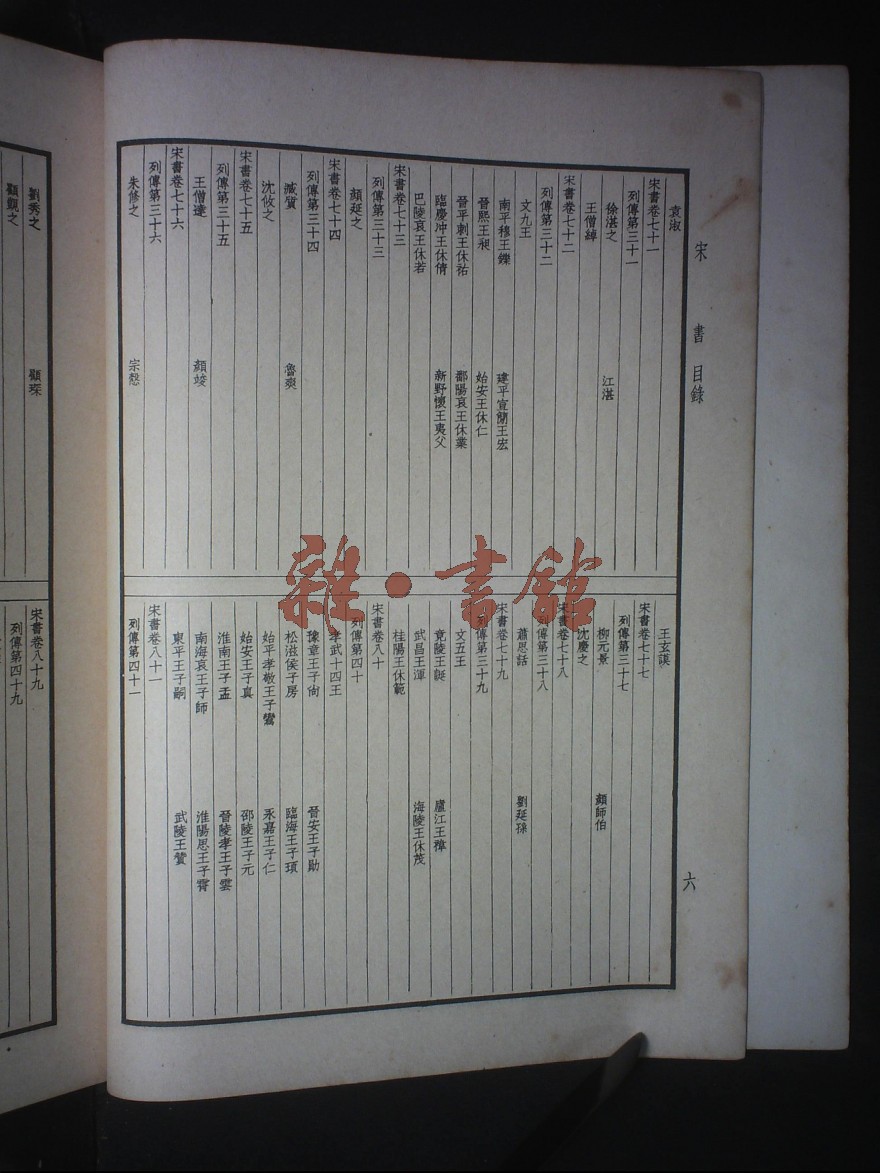 宋書目錄
六
袁淑
宋書卷七十一
列傳第三十一
徐湛之 江湛
王僧綽
宋書卷七十二
列傳第三十二
文九王
南平穆王鑠 建平宣簡王宏
晉熙王昶 始安王休仁
晉平剌王休祐 鄱陽哀王休業
臨慶沖王休倩 新野懷王夷父
巴陵哀王休若
宋書卷七十三
列傳第三十三
顏延之
宋書卷七十四
列傳第三十四
臧質 魯爽
沈攸之
宋書卷七十五
列傳第三十五
王僧達 顏竣
宋書卷七十六
列傳第三十六
朱修之 宗愨
王玄謨
宋書卷七十七
列傳第三十七
柳元景 顏師伯
沈慶之
宋書卷七十八
列傳第三十八
蕭思話 劉延孫
宋書卷七十九
列傳第三十九
文五王
竟陵王誕 廬江王褘
武昌王渾 海陵王休茂
桂陽王休範
宋書卷八十
列傳第四十
孝武十四王
豫章王子尚 晉安王子勛
松滋侯子房 臨海王子頊
始平孝敬王子鸞 永嘉王子仁
始安王子真 邵陵王子元
淮南王子孟 晉陵孝王子雲
南海哀王子師 淮陽思王子霄
東平王子嗣 武陵王贊
宋書卷八十一
列傳第四十一
劉秀之 顧琛
顧覬之
宋書卷八十九
列傳第四十九
雜·書館